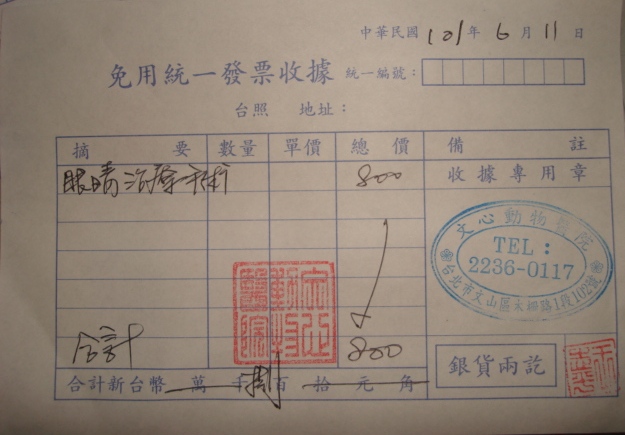 中華民國 101 年 6 月 11 日
免用統一發票收據 統一編號：
台照 地址：
摘要 數量 單價 總價 備註
眼睛治療手術 800 收據專用章
文心動物醫院
TEL：
2236-0117
台北市文山區木柵路1段109號
合計 800
銀貨兩訖
合計新台幣 萬 千 捌 百 拾 元 角